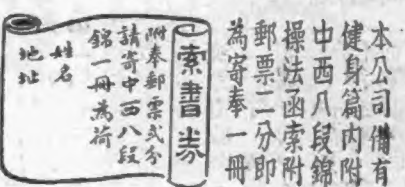 本公司備有
健身篇内附
中西八段錦
操法函索附
郵票二分即
為寄奉一冊
索書券
附奉郵票弍分
請寄中西八段
錦一冊為荷
姓名
地址